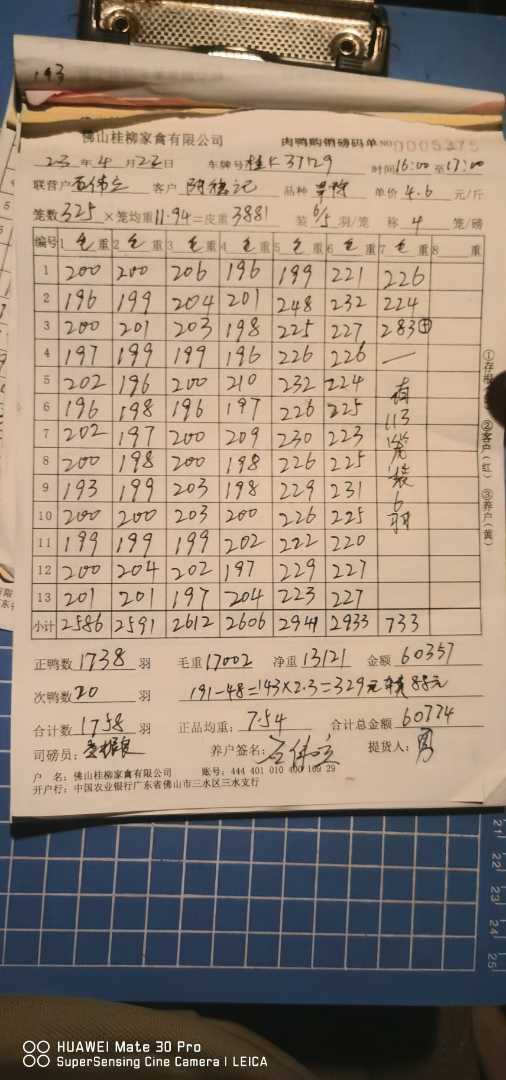 193
佛山桂柳家禽有限公司 肉鸭购销磅码单 NO 0005375
23年4月22日 车牌号 桂K37729 时间16:00至17:00
联营户 客户 品种 单价 4.6 元/斤
笼数 325 ×笼均重 11.94 =皮重 3881 装 6/5 羽/笼 称 4 笼/磅
编号 1 毛 重 2 毛 重 3 毛 重 4 毛 重 5 毛 重 6 毛 重 7 毛 重 8 重
1 200 200 206 196 199 221 226
2 196 199 204 201 248 232 224
3 200 201 203 198 225 227 283
4 197 199 199 196 226 226 —
5 202 196 200 210 232 224
6 196 198 196 197 226 225
7 202 197 200 209 230 223
8 200 198 200 198 226 225
9 193 199 203 198 229 231
10 200 200 203 200 226 225
11 199 199 199 202 222 220
12 200 204 202 197 229 227
13 201 201 197 204 223 227
小计 2586 2591 2612 2606 2941 2933 733
有113笼装6羽
①存根 ②客户(红) ③养户(黄)
正鸭数 1738 羽 毛重 17002 净重 13121 金额 60357
次鸭数 20 羽 191-48=143×2.3=329元 88元
合计数 1758 羽 正品均重: 7.54 合计总金额 60774
司磅员: 养户签名: 提货人:
户 名: 佛山桂柳家禽有限公司 账号: 444 401 010 400 109 29
开户行: 中国农业银行广东省佛山市三水区三水支行
21
22
23
24
25
HUAWEI Mate 30 Pro
SuperSensing Cine Camera | LEICA